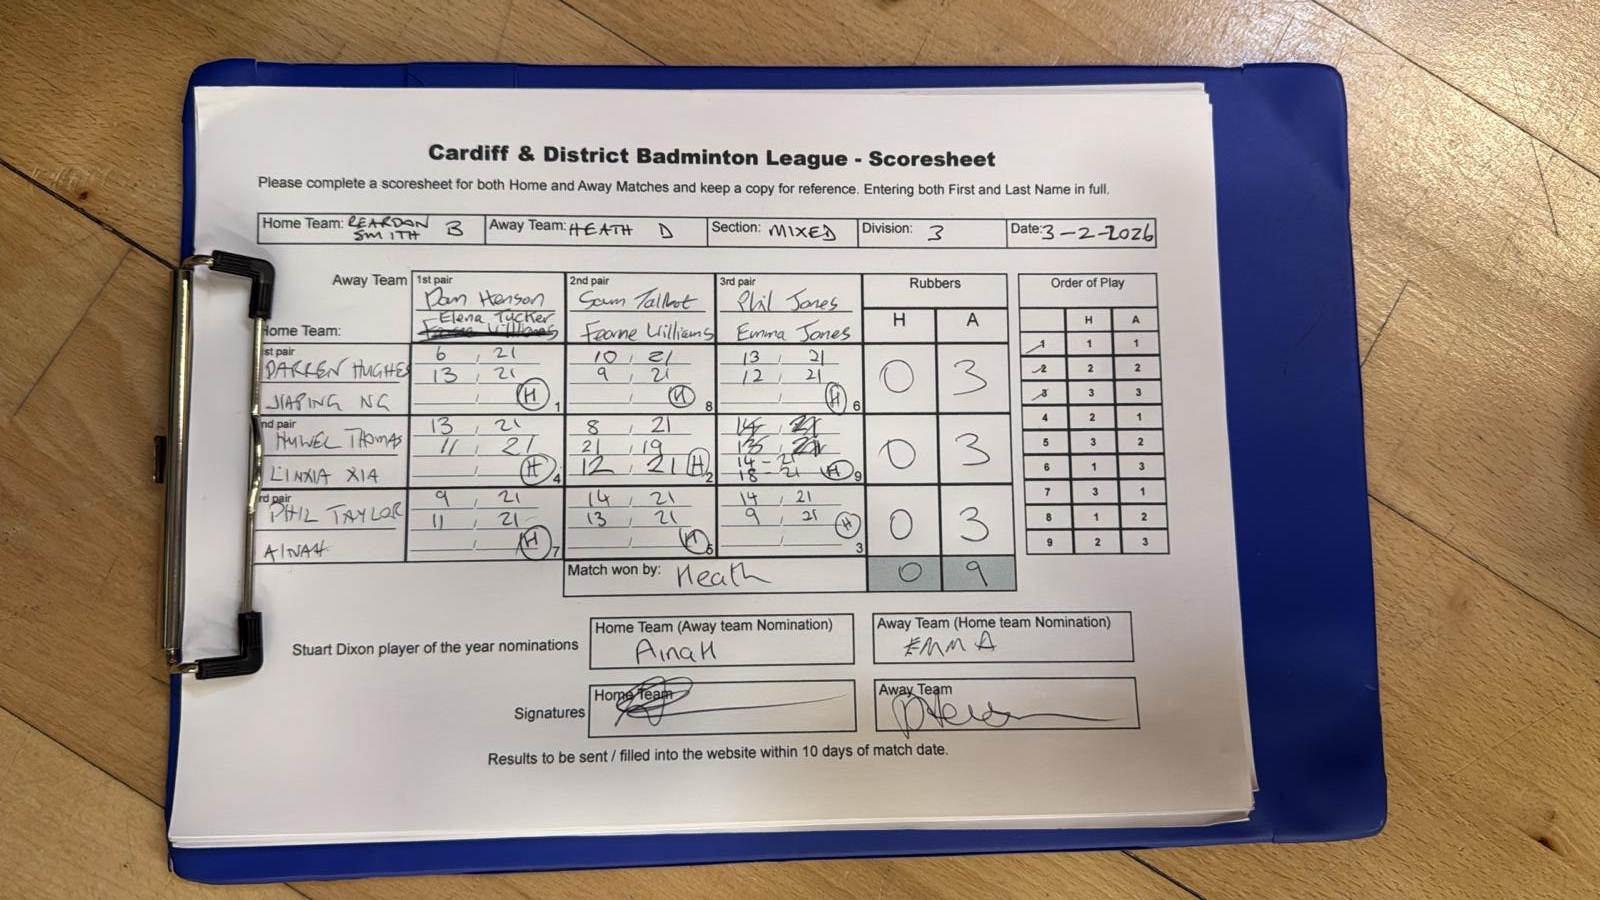 Cardiff & District Badminton League - Scoresheet
Please complete a scoresheet for both Home and Away Matches and keep a copy for reference. Entering both First and Last Name in full.
Home Team: REARDON SMITH B Away Team: HEATH D Section: MIXED Division: 3 Date: 3-2-2026
Away Team 1st pair 2nd pair 3rd pair Rubbers Order of Play
Dan Henson Sam Talbot Phil Jones
Elena Tucker Fearne Williams Emma Jones H A H A
Home Team:
1 1 1
2 2 2
3 3 3
4 2 1
5 3 2
6 1 3
7 3 1
8 1 2
9 2 3
st pair 6 , 21 10 , 21 13 , 21
DARREN HUGHES 13 , 21 9 , 21 12 , 21 0 3
JIAPING NG H 1 H 8 H 6
nd pair 13 , 21 8 , 21
HYWEL THOMAS 11 , 21 21 , 19 0 3
LINXIA XIA H 4 12 , 21 H 2 14 - 21
18 - 21 H 9
rd pair 9 , 21 14 , 21 14 , 21
PHIL TAYLOR 11 , 21 13 , 21 9 , 21 0 3
AINAH H 7 H 5 H 3
Match won by: Heath 0 9
Stuart Dixon player of the year nominations
Home Team (Away team Nomination) Away Team (Home team Nomination)
AinaH EMMA
Signatures Home Team Away Team
Results to be sent / filled into the website within 10 days of match date.